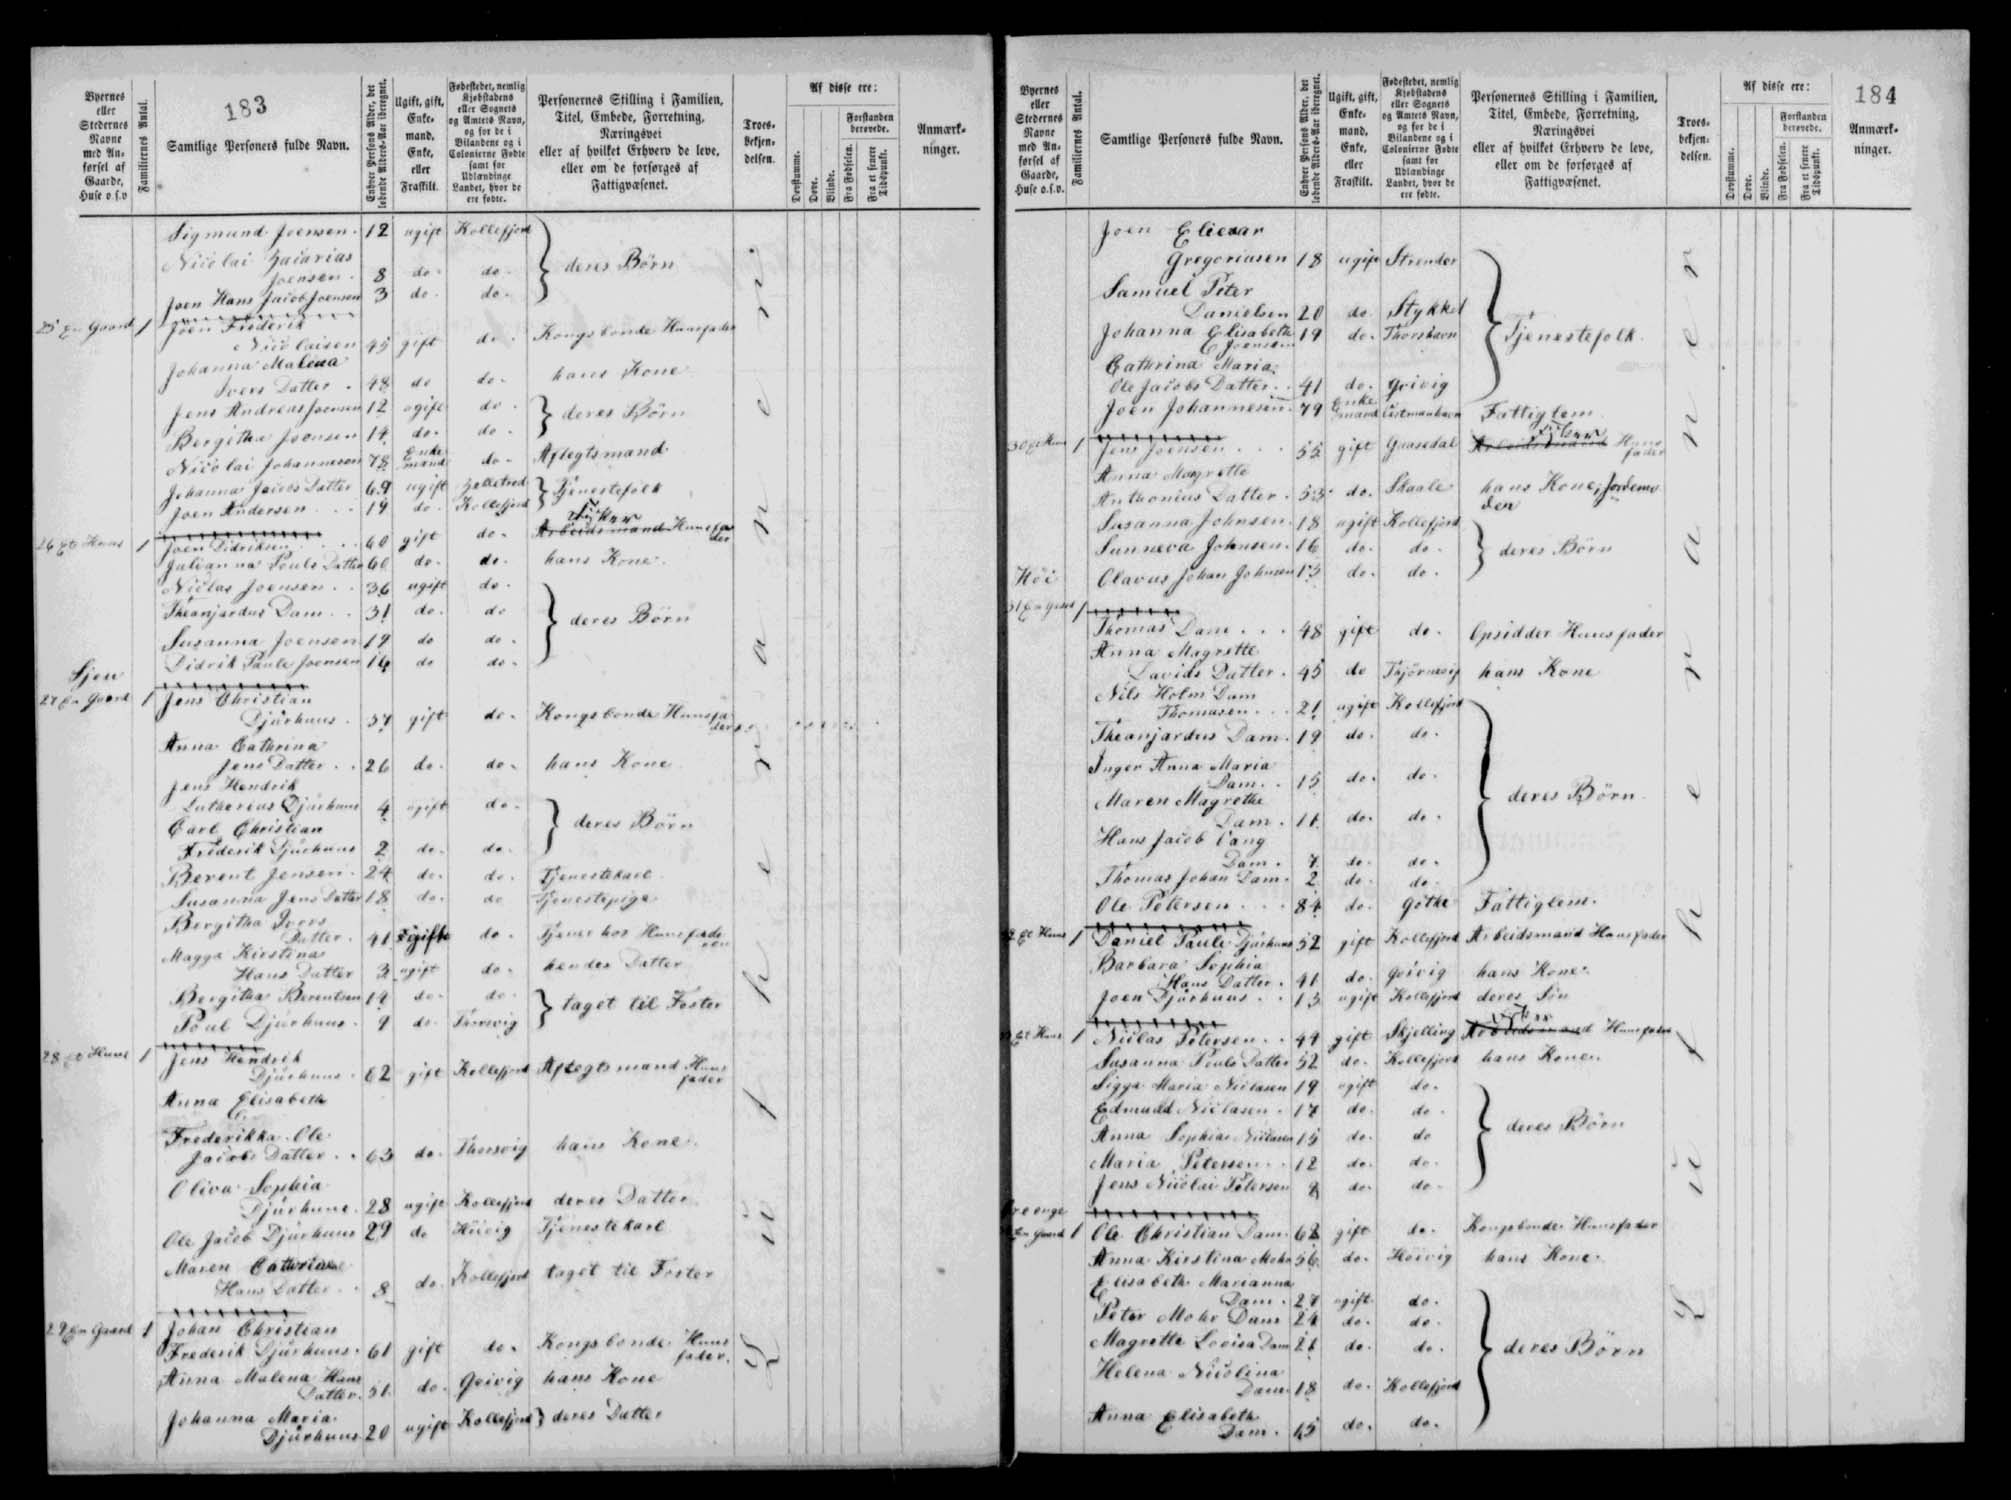 183
Byernes eller Stedernes Navne med Anførsel af Gaarde, Huse o.s.v
Familiernes Antal.
Samtlige Personers fulde Navn.
Enhver Persons Alder, det løbende Alders-Aar iberegnet.
Ugift, gift, Enkemand, Enke, eller Fraskilt.
Fødestedet, nemlig Kjøbstadens eller Sognets og Amtets Navn, og for de i Bilandene og i Colonierne Fødte samt for Udlændinge Landet, hvor de ere fødte.
Personernes Stilling i Familien, Titel, Embede, Forretning, Næringsvei eller af hvilket Erhverv de leve, eller om de forsørges af Fattigvæsenet.
Troesbekjendelsen.
Af disse ere:
Døvstumme.
Døve.
Blinde.
Forstanden berøvede.
Fra Fødselen.
Fra et senere Tidspunkt.
Anmærkninger.
Sigmund Joensen. 12 ugift Kollefjord
Nicolai Zacarias
Joensen. 8 do. do. } deres Børn
Joen Hans Jacob Joensen 3 do. do.
25 En Gaard 1 Joen Frederik
Nicolaisen 45 gift do. Kongsbonde Huusfader
Johanna Malena
Ivers Datter. 48 do do. hans Kone
Jens Andreas Joensen 12 ugift do. } deres Børn
Bergitha Joensen 14 do. do.
Nicolai Johannesen 78 Enkemand do. Aflegtsmand
Johanna Jacobs Datter 69 ugift Zelletræd } Tjenestefolk
Joen Andersen 19 do. Kollefjord
26 Et Huus 1 Joen Didriksen 60 gift do. Arbeidsmand Huusfader
Fisker
Julianna Pouls Datter 60 do. do. hans Kone.
Niclas Joensen 36 ugift do.
Theanjardus Dam 31 do. do
Susanna Joensen 19 do do. } deres Børn
Didrik Paule Joensen 14 do do.
Sjou
27 En Gaard 1 Jens Christian
Djurhuus. 37 gift do. Kongsbonde Huusfader
Anna Cathrina
Jens Datter 26 do. do. hans Kone
Jens Hendrik
Lutherius Djurhuus 4 ugift do. } deres Børn
Carl Christian
Frederik Djurhuus 2 do. do.
Berent Jensen. 24 do. do. Tjenestekarl
Susanna Jens Datter 18 do. do Tjenestepige
Bergitha Ivers
Datter. 41 ugift do. Tjener hos Huusfaderen
Magga Kirstina
Hans Datter 3 ugift do. hendes Datter
Bergitha Berentsen 14 do. do. } taget til Foster
Poul Djurhuus. 9 do. Thorsvig
28 Et Huus 1 Jens Hendrik
Djurhuus. 62 gift Kollefjord Aflegtsmand Huusfader
Anna Elisabeth
Frederikka Ole
Jacobs Datter 63 do. Thorsvig hans Kone.
Oliva Sophia
Djurhuus. 28 ugift Kollefjord deres Datter
Ole Jacob Djurhuus 29 do Hüivig Tjenestekarl
Maren Cathrina
Hans Datter 8 do. Kollefjord taget til Foster
29 En Gaard 1 Johan Christian
Frederik Djurhuus. 61 gift do. Kongsbonde Huusfader.
Anna Malena Hans
Datter. 51 do. Gøivig hans Kone
Johanna Maria
Djurhuus 20 ugift Kollefjord } deres Datter
Lutheranere
184
Byernes eller Stedernes Navne med Anførsel af Gaarde, Huse o.s.v.
Familiernes Antal.
Samtlige Personers fulde Navn.
Enhver Persons Alder, det løbende Alders-Aar iberegnet.
Ugift, gift, Enkemand, Enke, eller Fraskilt.
Fødestedet, nemlig Kjøbstadens eller Sognets og Amtets Navn, og for de i Bilandene og i Colonierne Fødte samt for Udlændinge Landet, hvor de ere fødte.
Personernes Stilling i Familien, Titel, Embede, Forretning, Næringsvei eller af hvilket Erhverv de leve, eller om de forsørges af Fattigvæsenet.
Troesbekjendelsen.
Af disse ere:
Døvstumme.
Døve.
Blinde.
Forstanden berøvede.
Fra Fødselen.
Fra et senere Tidspunkt.
Anmærkninger.
Joen Eliesar
Gregoriasen 18 ugift Strender
Samuel Peter
Danielsen 20 do. Stykket
Johanna Elisabeth
Joensen 19 do. Thorshavn } Tjenestefolk
Cathrina Maria
Ole Jacobs Datter 41 do. Gøivig
Joen Johannesen 79 Enkemand Vestmanhavn Fattiglem
30 Et Huus 1 Jens Joensen 55 gift Gaasedal Arbeidsmand Huusfader
Fisker
Anna Magrette
Anthonius Datter. 53 do. Skaale hans Kone, Jordemoder
Susanna Johnsen. 18 ugift Kollefjord
Sunneva Johnsen. 16 do. do. } deres Børn
Olavus Johan Johnsen 13 do. do.
Høi
31 En Gaard 1 Thomas Dam 48 gift do. Opsidder Huusfader
Anna Magrette
Davids Datter. 45 do Tjørnevig hans Kone
Nils Holm Dam
Thomasen 21 ugift Kollefjord
Theanjardus Dam. 19 do. do.
Inger Anna Maria
Dam. 15 do. do.
Maren Magrethe
Dam. 11 do. do. } deres Børn
Hans Jacob Vang
Dam. 7 do. do.
Thomas Johan Dam. 2 do. do.
Ole Petersen 84 do. Gøthe Fattiglem.
32 Et Huus 1 Daniel Pauli Djurhuus 52 gift Kollefjord Arbeidsmand Huusfader
Barbara Sophia
Hans Datter. 41 do. Gøivig hans Kone.
Joen Djurhuus 13 ugift Kollefjord deres Søn
Et Huus 1 Niclas Petersen 49 gift Skjelling Arbeidsmand Huusfader
Fisker
Susanna Pouls Datter 52 do. Kollefjord hans Kone.
Sigga Maria Niclasen 19 ugift do.
Edmund Niclasen. 17 do. do.
Anna Sophia Niclasen 15 do. do } deres Børn
Maria Petersen 12 do. do.
Jens Nicolai Petersen 8 do. do.
En Gaard 1 Ole Christian Dam 62 gift do. Kongsbonde Huusfader
Anna Kirstina Mohr 56 do. Hoivig hans Kone.
Elisabeth Marianna
Dam. 27 ugift do.
Peter Mohr Dam 24 do. do.
Magrette Lovisa Dam 21 do. do. } deres Børn
Helena Nicolina
Dam 18 do. Kollefjord
Anna Elisabeth
Dam. 15 do. do.
Lutheranere